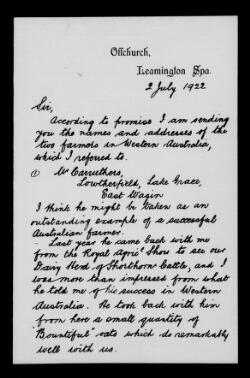 Offchurch,
Leamington Spa.
2 July 1922
Sir,
According to promise I am sending
you the names and addresses of the
two farmers in Western Australia,
which I refered to.
① Mr Carruthers,
Lowtherfield, Lake Grace,
East Wagin
I think he might be taken as an
outstanding example of a successful
Australian farmer.
- Last year he came back with me
from the Royal Agricl Show to see our
Dairy Herd of Shorthorn Cattle, and I
was more than impressed from what
he told me of his success in Western
Australia. He took back with him
from here a small quantity of
"Bountiful" oats which do remarkably
well with us.